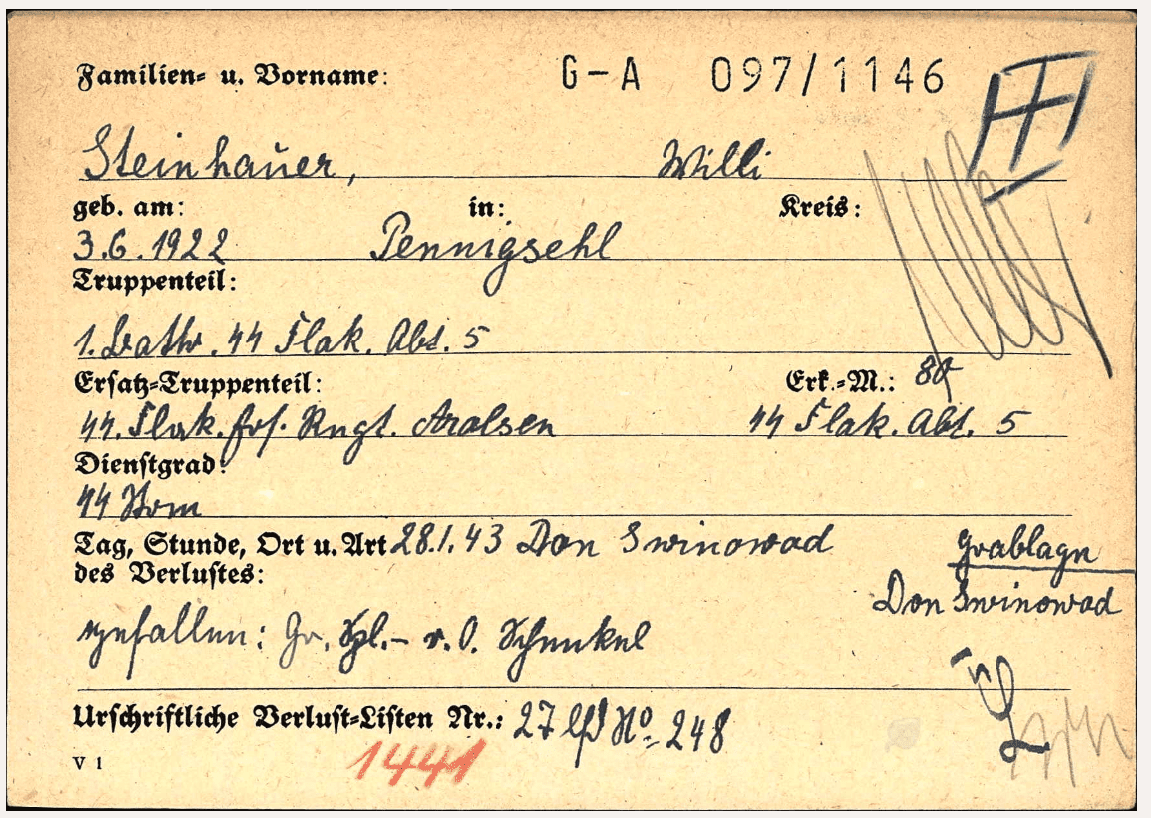 Familien- u. Vorname: G-A 097/1146
Steinhauer, Willi
geb. am: in: Kreis:
3.6.1922 Pennigsehl
Truppenteil:
1. Battr. 44 Flak. Abt. 5
Ersatz-Truppenteil: Erk.-M.: 80
44. Flak. Ers. Rngt. Arolsen 44 Flak. Abt. 5
Dienstgrad:
44 Strm
Tag, Stunde, Ort u. Art 28.1.43 Don Swinowad Grablagn
des Verlustes: Don Swinowad
gefallen: Gr. Spl.- r. O. Schenkel
Urschriftliche Verlust-Listen Nr.: 27 lfd No 248
V 1 1441